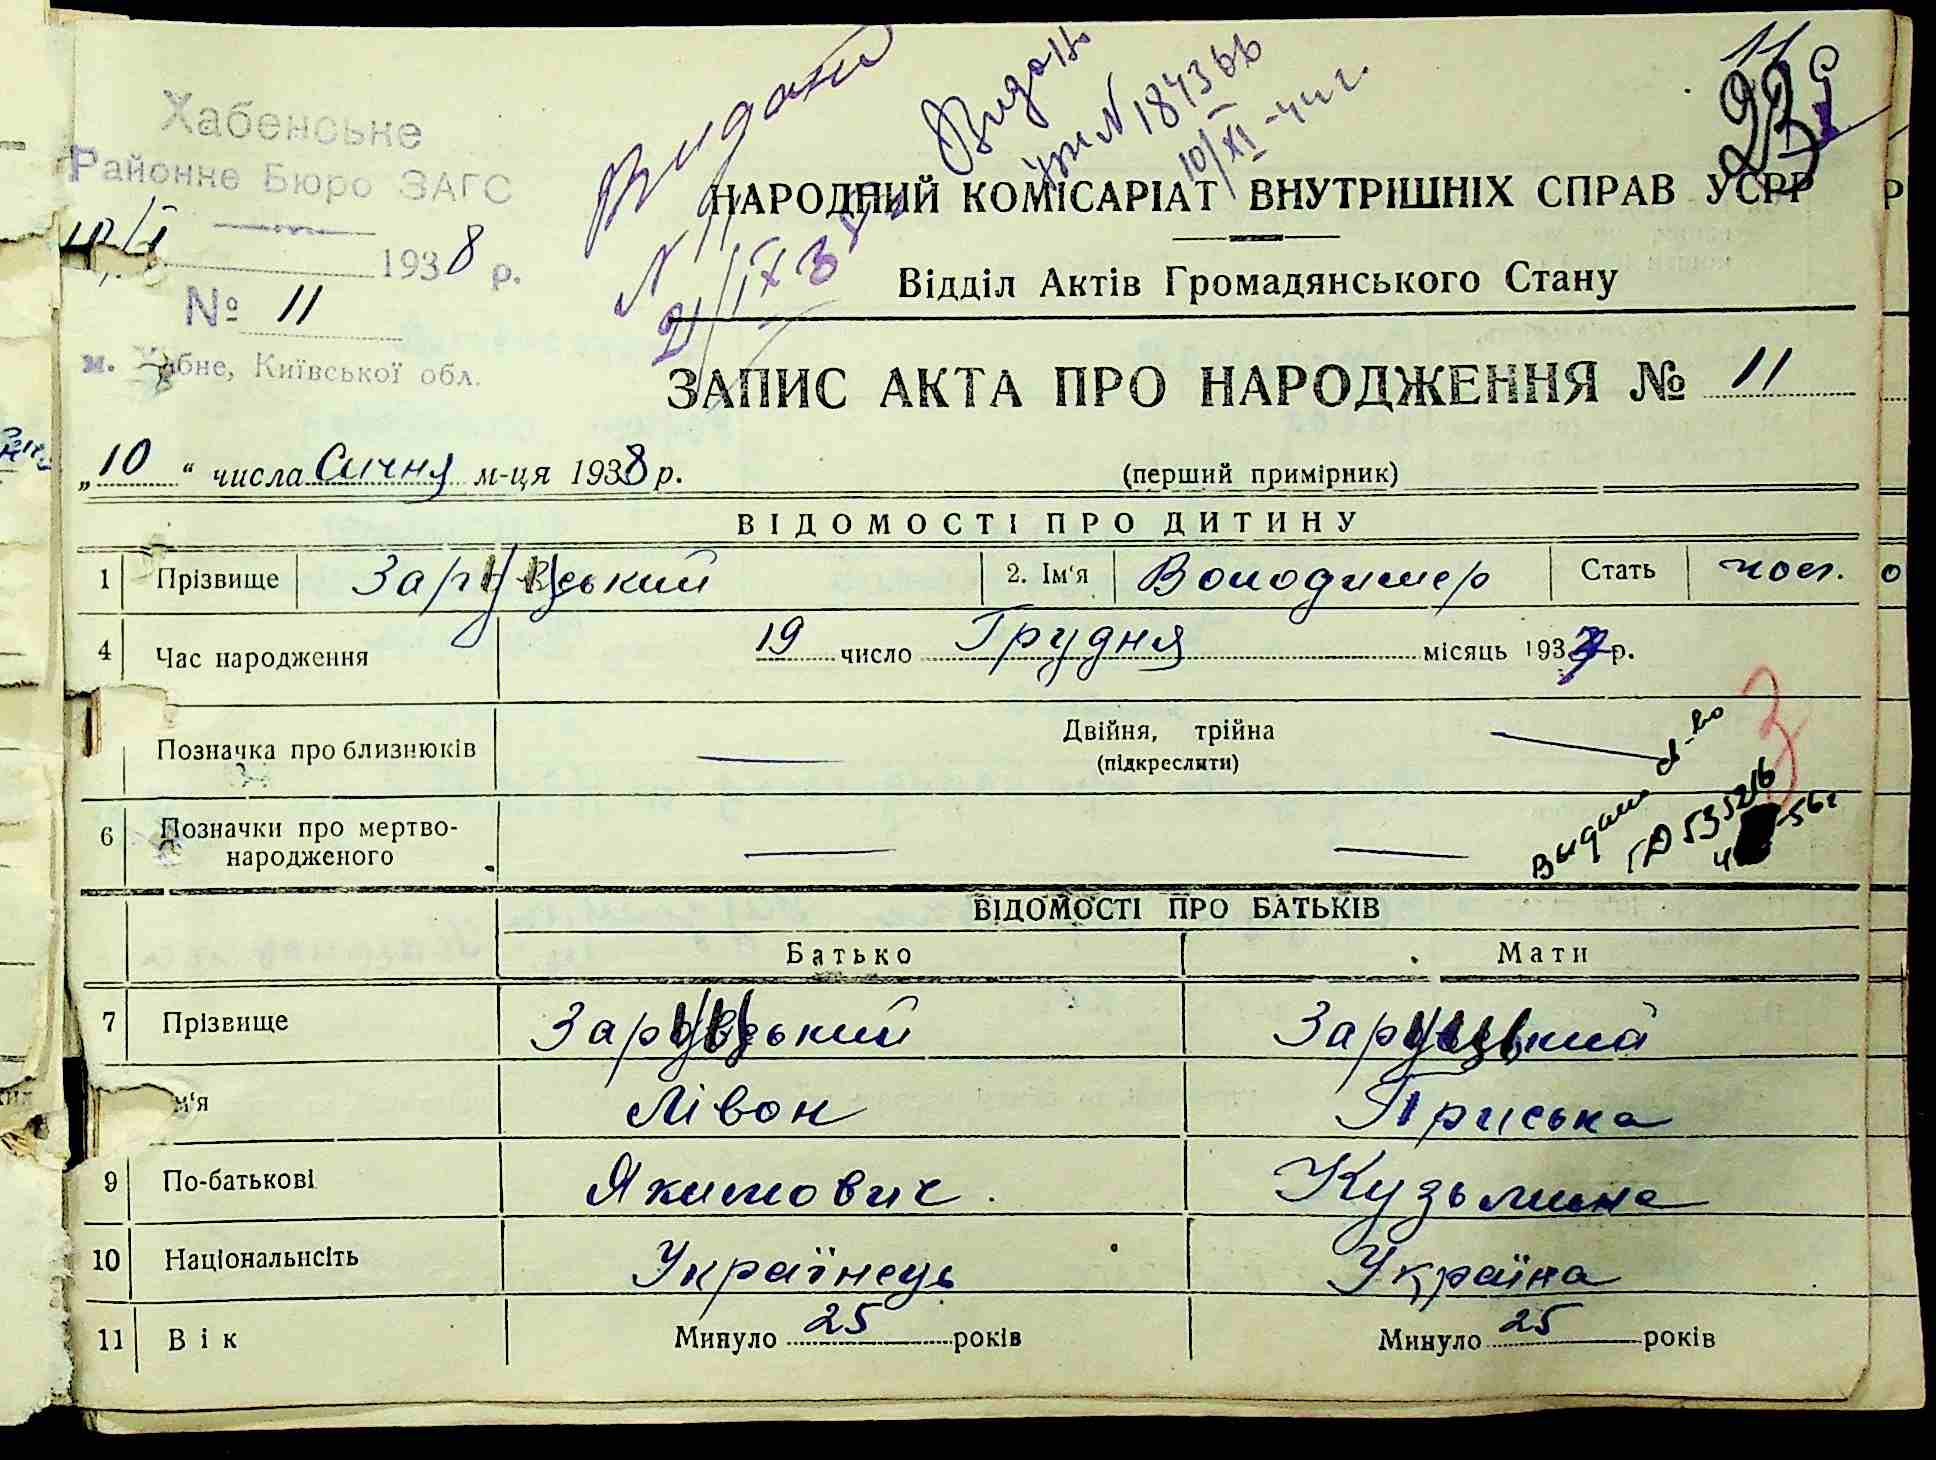 Хабенське
Районне Бюро ЗАГС
10/I 1938 р.
№ 11
м. Хабне, Київської обл.
Видано
Видано
10/XI-44 г.
НАРОДНИЙ КОМІСАРІАТ ВНУТРІШНІХ СПРАВ УСРР
Відділ Актів Громадянського Стану
ЗАПИС АКТА ПРО НАРОДЖЕННЯ № 11
„10“ числа Січня м-ця 1938 р. (перший примірник)
ВІДОМОСТІ ПРО ДИТИНУ
1 Прізвище Заруцький 2. Ім'я Володимер Стать чол.
4 Час народження 19 число Грудня місяць 1937 р.
Позначка про близнюків Двійня, трійна
(підкреслити)
Видано св-во
ГД 535216
6 Позначки про мертво-
народженого
ВІДОМОСТІ ПРО БАТЬКІВ
Батько Мати
7 Прізвище Заруцький Заруцький
м'я Лівон Приська
9 По-батькові Якимович Кузьмина
10 Національнсіть Українець Україна
11 Вік Минуло 25 років Минуло 25 років